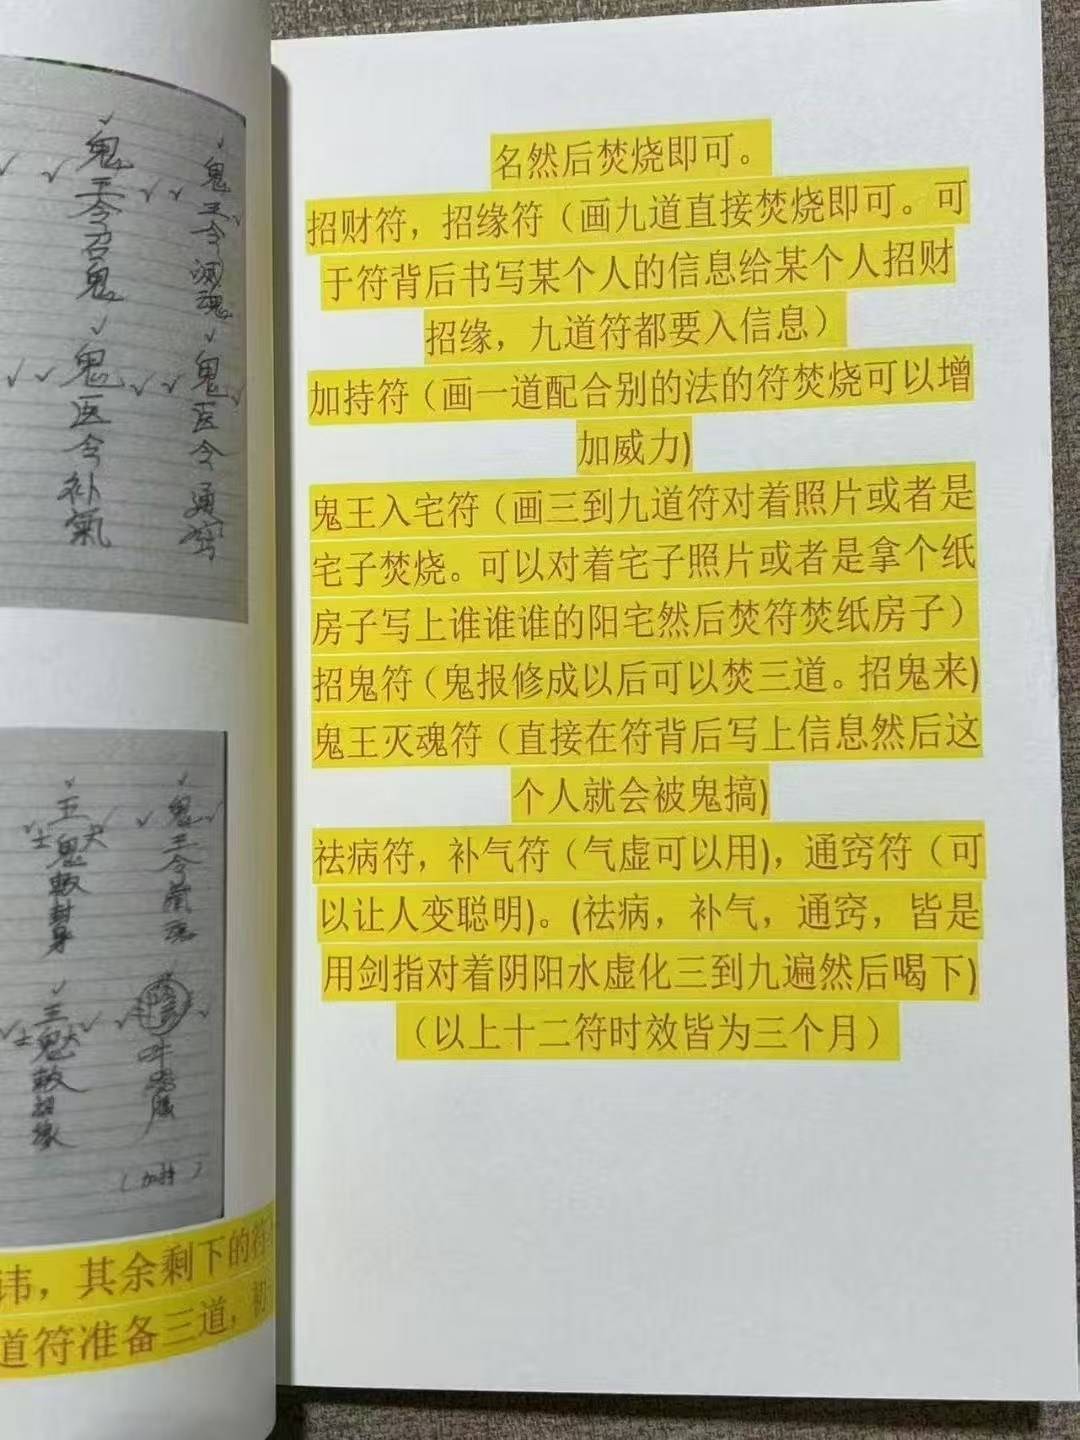 鬼王令召鬼
鬼医令补氣
鬼医令通窍
五鬼
三鬼
(加持)
讳，其余剩下的符
道符准备三道，初
名然后焚烧即可。
招财符，招缘符（画九道直接焚烧即可。可
于符背后书写某个人的信息给某个人招财
招缘，九道符都要入信息）
加持符（画一道配合别的法的符焚烧可以增
加威力)
鬼王入宅符（画三到九道符对着照片或者是
宅子焚烧。可以对着宅子照片或者是拿个纸
房子写上谁谁谁的阳宅然后焚符焚纸房子）
招鬼符（鬼报修成以后可以焚三道。招鬼来)
鬼王灭魂符（直接在符背后写上信息然后这
个人就会被鬼搞)
祛病符，补气符（气虚可以用)，通窍符（可
以让人变聪明)。(祛病，补气，通窍，皆是
用剑指对着阴阳水虚化三到九遍然后喝下)
（以上十二符时效皆为三个月）